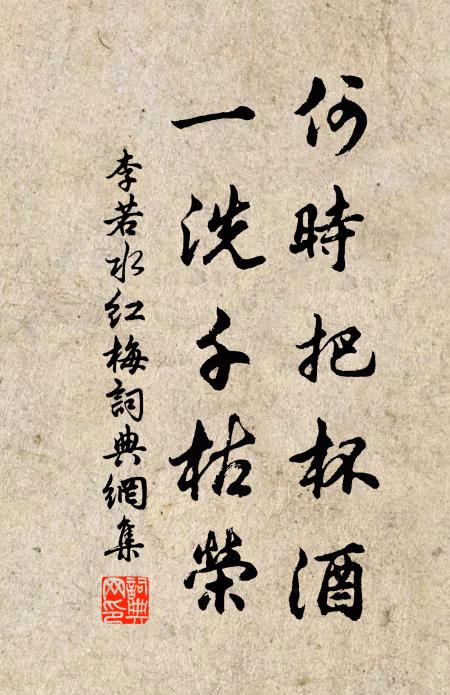 何時把杯酒
一洗千枯榮
李若水紅梅詞典網集
詞典网印